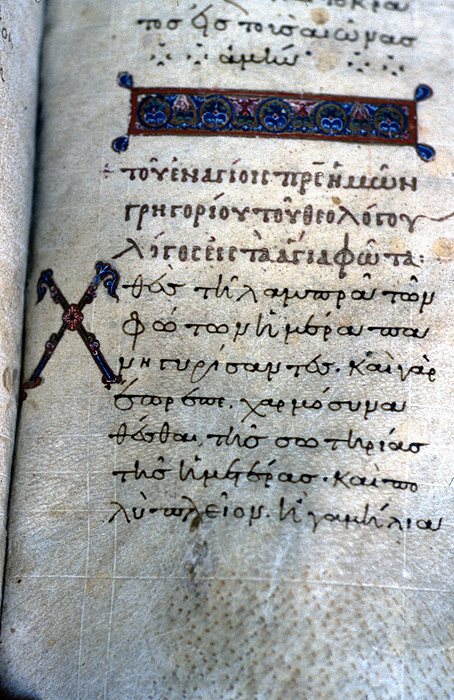 το κρα
τος εἰς τοὺς αἰῶνας
ἀμήν
τοῦ ἐν ἁγίοις πρς ἡμῶν
γρηγορίου τοῦ θεολόγου
λόγος εἰς τὰ ἅγια φῶτα:
Χθὲς τῆ λαμπρᾶ τῶν
φώτων ἡμέρα πα
νηγυρίσαντες. καὶ γὰρ
ἔπρεπε. χαρμόσυνα
θέσθαι τῆς σωτηρίας
τῆς ἡμετέρας. καὶ πο
λὺ πλεῖον. ἢ γαμήλια